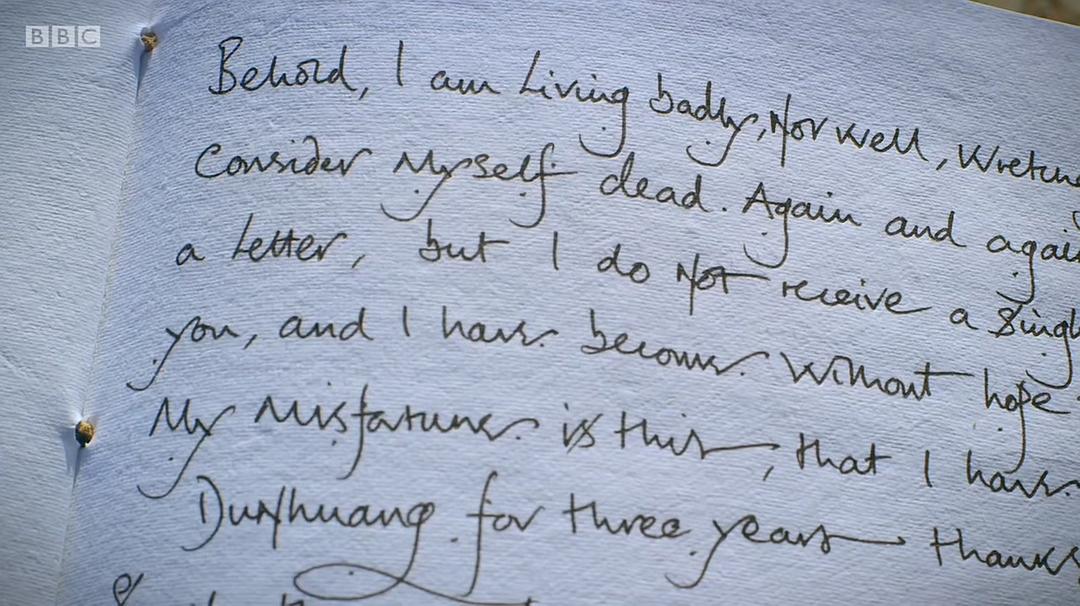 BBC
Behold, I am living badly, not well,
Consider myself dead. Again and again
a letter, but I do not receive a
you, and I have become without hope
My misfortune is this, that I have
Dunhuang for three years